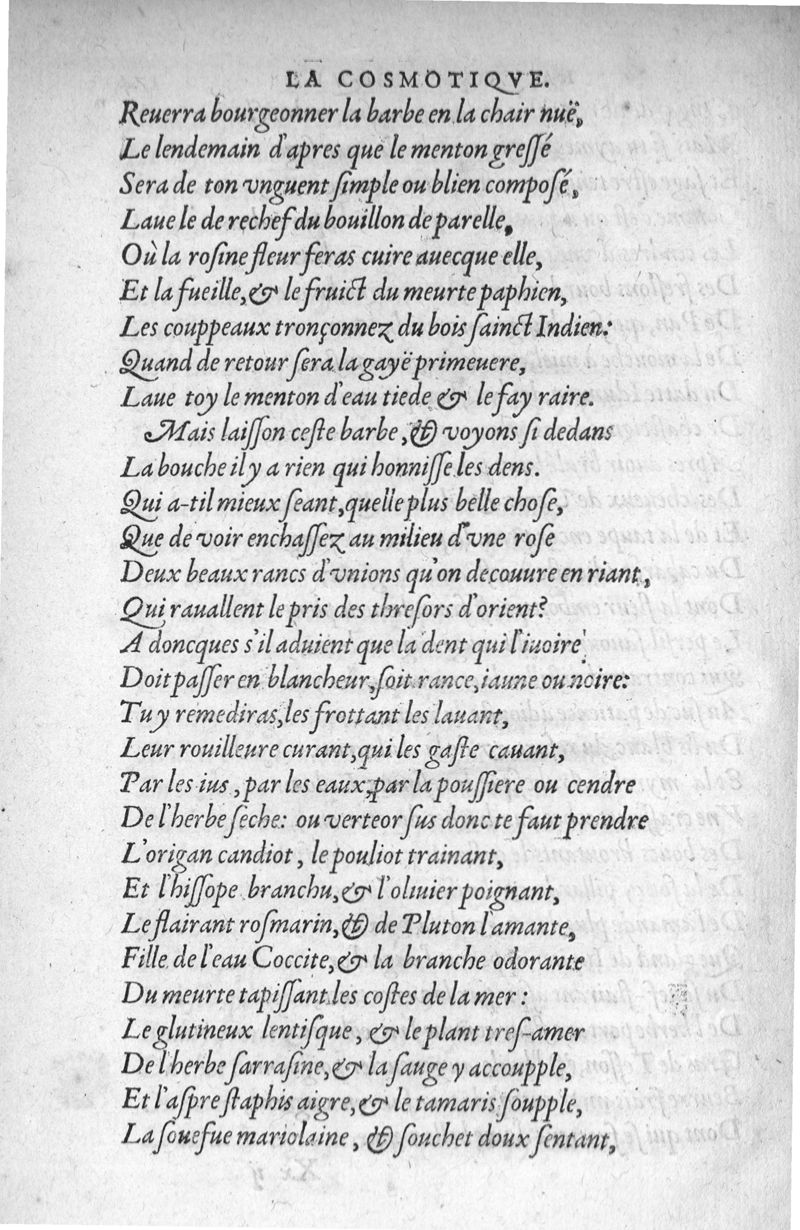 LA COSMOTIQVE.
Reuerra bourgeonner la barbe en la chair nuë,
Le lendemain d'apres que le menton gressé
Sera de ton vnguent simple ou blien composé,
Laue le de rechef du bouillon de parelle,
Où la rosine fleur feras cuire auecque elle,
Et la fueille, & le fruict du meurte paphien,
Les couppeaux tronçonnez du bois sainct Indien:
Quand de retour sera la gayë primeuere,
Laue toy le menton d'eau tiede & le fay raire.
Mais laisson ceste barbe, & voyons si dedans
La bouche il y a rien qui honnisse les dens.
Qui a-til mieux seant, quelle plus belle chose,
Que de voir enchassez au milieu d'vne rose
Deux beaux rancs d'vnions qu'on decouure en riant,
Qui rauallent le pris des thresors d'orient?
A doncques s'il aduient que la dent qui l'iuoire
Doit passer en blancheur, soit rance, iaune ou noire:
Tu y remediras, les frottant les lauant,
Leur rouilleure curant, qui les gaste cauant,
Par les ius, par les eaux, par la poussiere ou cendre
De l'herbe seche: ou verte or sus donc te faut prendre
L'origan candiot, le pouliot trainant,
Et l'hissope branchu, & l'oliuier poignant,
Le flairant rosmarin, & de Pluton l'amante,
Fille de l'eau Coccite, & la branche odorante
Du meurte tapissant les costes de la mer:
Le glutineux lentisque, & le plant tres-amer
De l'herbe sarrasine, & la sauge y accoupple,
Et l'aspre staphis aigre, & le tamaris soupple,
La souefue mariolaine, & souchet doux sentant,